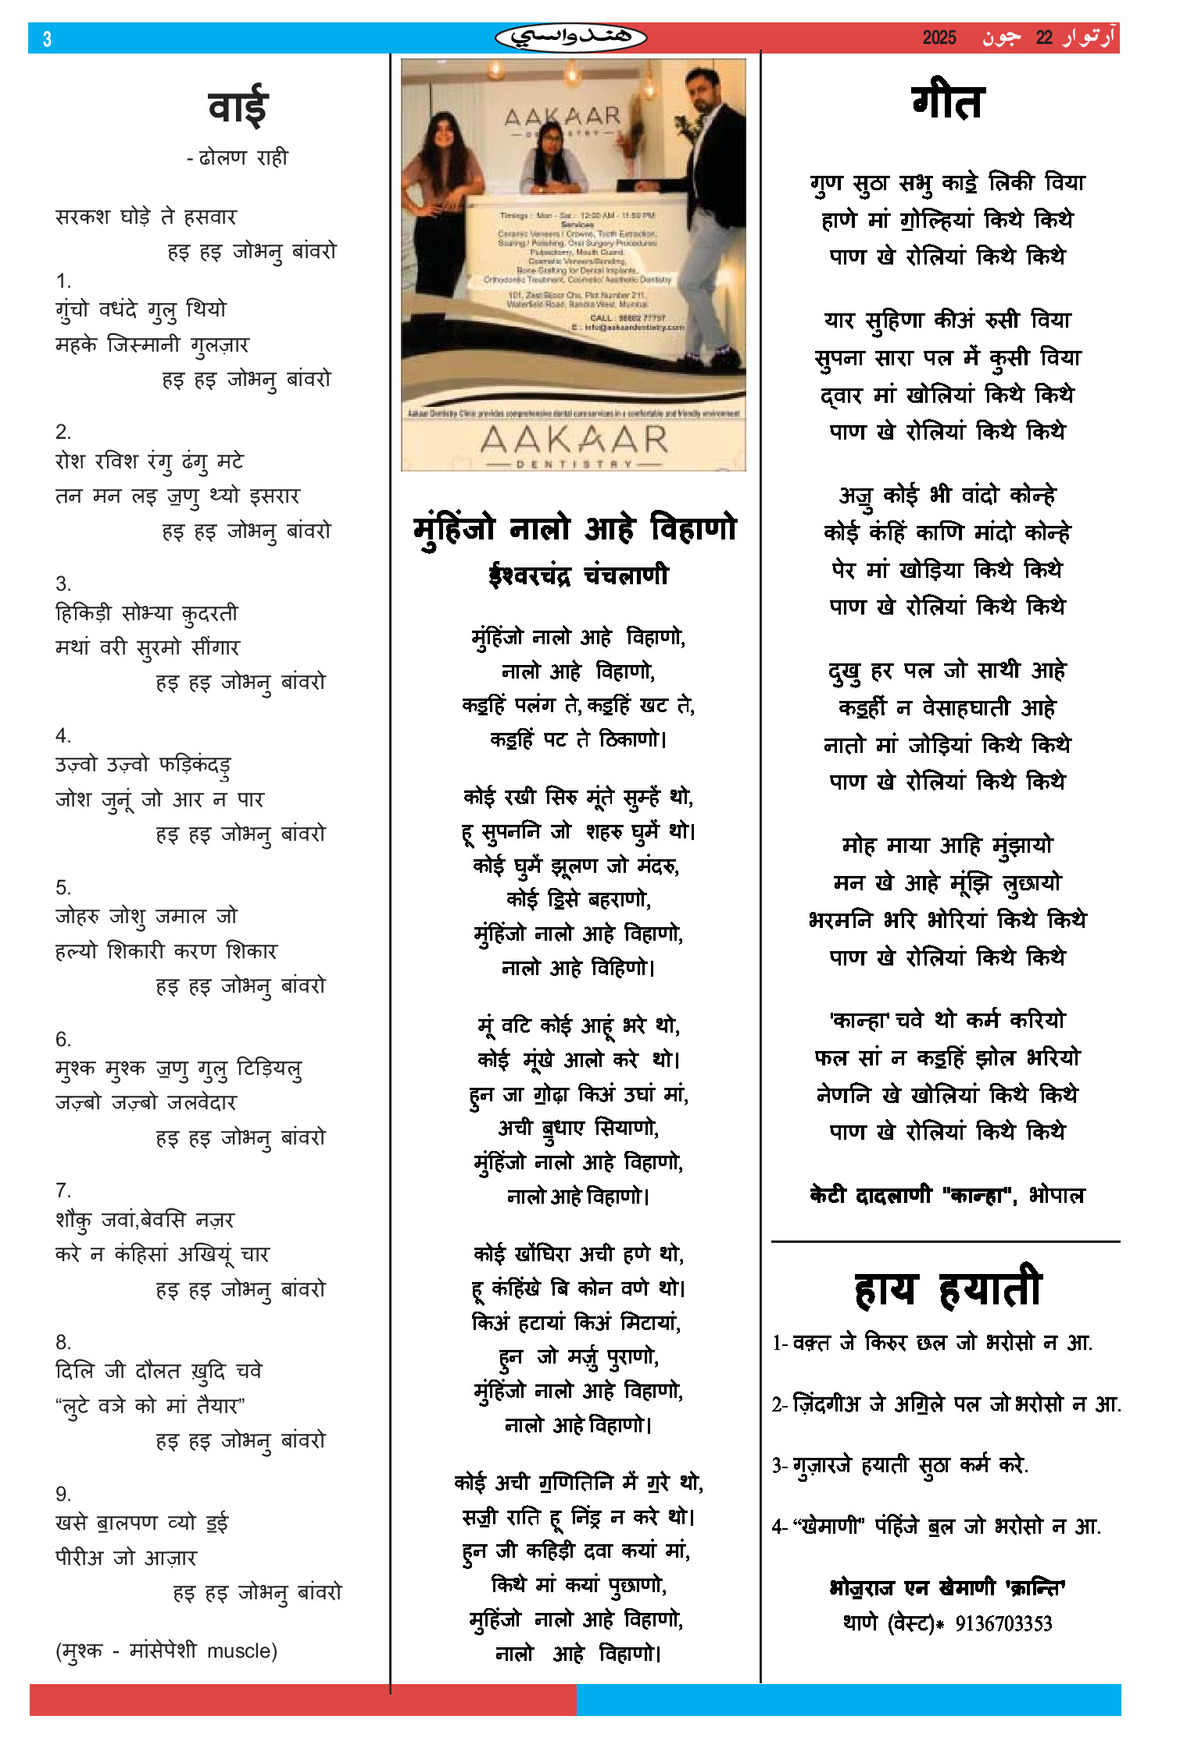 3
هندواسي
آرتوار 22 جون 2025
वाई
- ढोलण राही
सरकश घोड़े ते हसवार
हइ हइ जोभनु बांवरो
1.
गुंचो वधंदे गुलु थियो
महके जिस्मानी गुलज़ार
हइ हइ जोभनु बांवरो
2.
रोश रविश रंगु ढंगु मटे
तन मन लइ ज॒णु थ्यो इसरार
हइ हइ जोभनु बांवरो
3.
हिकिड़ी सोभ्या क़ुदरती
मथां वरी सुरमो सींगार
हइ हइ जोभनु बांवरो
4.
उज़्वो उज़्वो फड़िकंदड़ु
जोश जुनूं जो आर न पार
हइ हइ जोभनु बांवरो
5.
जोहरु जोशु जमाल जो
हल्यो शिकारी करण शिकार
हइ हइ जोभनु बांवरो
6.
मुश्क मुश्क ज॒णु गुलु टिड़ियलु
जज़्बो जज़्बो जलवेदार
हइ हइ जोभनु बांवरो
7.
शौक़ु जवां,बेवसि नज़र
करे न कंहिसां अखियूं चार
हइ हइ जोभनु बांवरो
8.
दिलि जी दौलत ख़ुदि चवे
“लुटे वञे को मां तैयार”
हइ हइ जोभनु बांवरो
9.
खसे बा॒लपण व्यो ड॒ई
पीरीअ जो आज़ार
हइ हइ जोभनु बांवरो
(मुश्क - मांसेपेशी muscle)
AAKAAR
DENTISTRY
Timings : Mon - Sat : 12:00 AM - 11:59 PM
Services
Ceramic Veneers / Crowns, Tooth Extraction,
Scaling / Polishing, Oral Surgery Procedures
Pulpectomy, Mouth Guard,
Cosmetic Veneers/Bonding,
Bone Grafting for Dental Implants,
Orthodontic Treatment, Cosmetic/ Aesthetic Dentistry
101, Zest Bijoor Chs, Plot Number 211,
Waterfield Road, Bandra West, Mumbai
CALL : 98682 77757
E : info@aakaardentistry.com
Aakaar Dentistry Clinic provides comprehensive dental care services in a comfortable and friendly environment
AAKAAR
DENTISTRY
मुंहिंजो नालो आहे विहाणो
ईश्वरचंद्र चंचलाणी
मुंहिंजो नालो आहे विहाणो,
नालो आहे विहाणो,
कड॒हिं पलंग ते, कड॒हिं खट ते,
कड॒हिं पट ते ठिकाणो।
कोई रखी सिरु मूंते सुम्हें थो,
हू सुपननि जो शहरु घुमें थो।
कोई घुमें झूलण जो मंदरु,
कोई डि॒से बहराणो,
मुंहिंजो नालो आहे विहाणो,
नालो आहे विहिणो।
मूं वटि कोई आहूं भरे थो,
कोई मूंखे आलो करे थो।
हुन जा गो॒ढ़ा किअं उघां मां,
अची बु॒धाए सियाणो,
मुंहिंजो नालो आहे विहाणो,
नालो आहे विहाणो।
कोई खोंघिरा अची हणे थो,
हू कंहिंखे बि कोन वणे थो।
किअं हटायां किअं मिटायां,
हुन जो मर्ज़ु पुराणो,
मुंहिंजो नालो आहे विहाणो,
नालो आहे विहाणो।
कोई अची ग॒णितिनि में ग॒रे थो,
सजी॒ राति हू निंड्र न करे थो।
हुन जी कहिड़ी दवा कयां मां,
किथे मां कयां पुछाणो,
मुहिंजो नालो आहे विहाणो,
नालो आहे विहाणो।
गीत
गुण सुठा सभु काडे॒ लिकी विया
हाणे मां गो॒ल्हियां किथे किथे
पाण खे रोलियां किथे किथे
यार सुहिणा कीअं रुसी विया
सुपना सारा पल में कुसी विया
द्वार मां खोलियां किथे किथे
पाण खे रोलियां किथे किथे
अजु॒ कोई भी वांदो कोन्हे
कोई कंहिं काणि मांदो कोन्हे
पेर मां खोड़िया किथे किथे
पाण खे रोलियां किथे किथे
दुखु हर पल जो साथी आहे
कड॒हीं न वेसाहघाती आहे
नातो मां जोड़ियां किथे किथे
पाण खे रोलियां किथे किथे
मोह माया आहि मुंझायो
मन खे आहे मूंझि लुछायो
भरमनि भरि भोरियां किथे किथे
पाण खे रोलियां किथे किथे
'कान्हा' चवे थो कर्म करियो
फल सां न कड॒हिं झोल भरियो
नेणनि खे खोलियां किथे किथे
पाण खे रोलियां किथे किथे
केटी दादलाणी "कान्हा", भोपाल
हाय हयाती
1- वक़्त जे किरुर छल जो भरोसो न आ.
2- ज़िंदगीअ जे अगि॒ले पल जो भरोसो न आ.
3- गुज़ारजे हयाती सुठा कर्म करे.
4- “खेमाणी” पंहिंजे ब॒ल जो भरोसो न आ.
भोज॒राज एन खेमाणी 'क्रान्ति'
थाणे (वेस्ट)* 9136703353